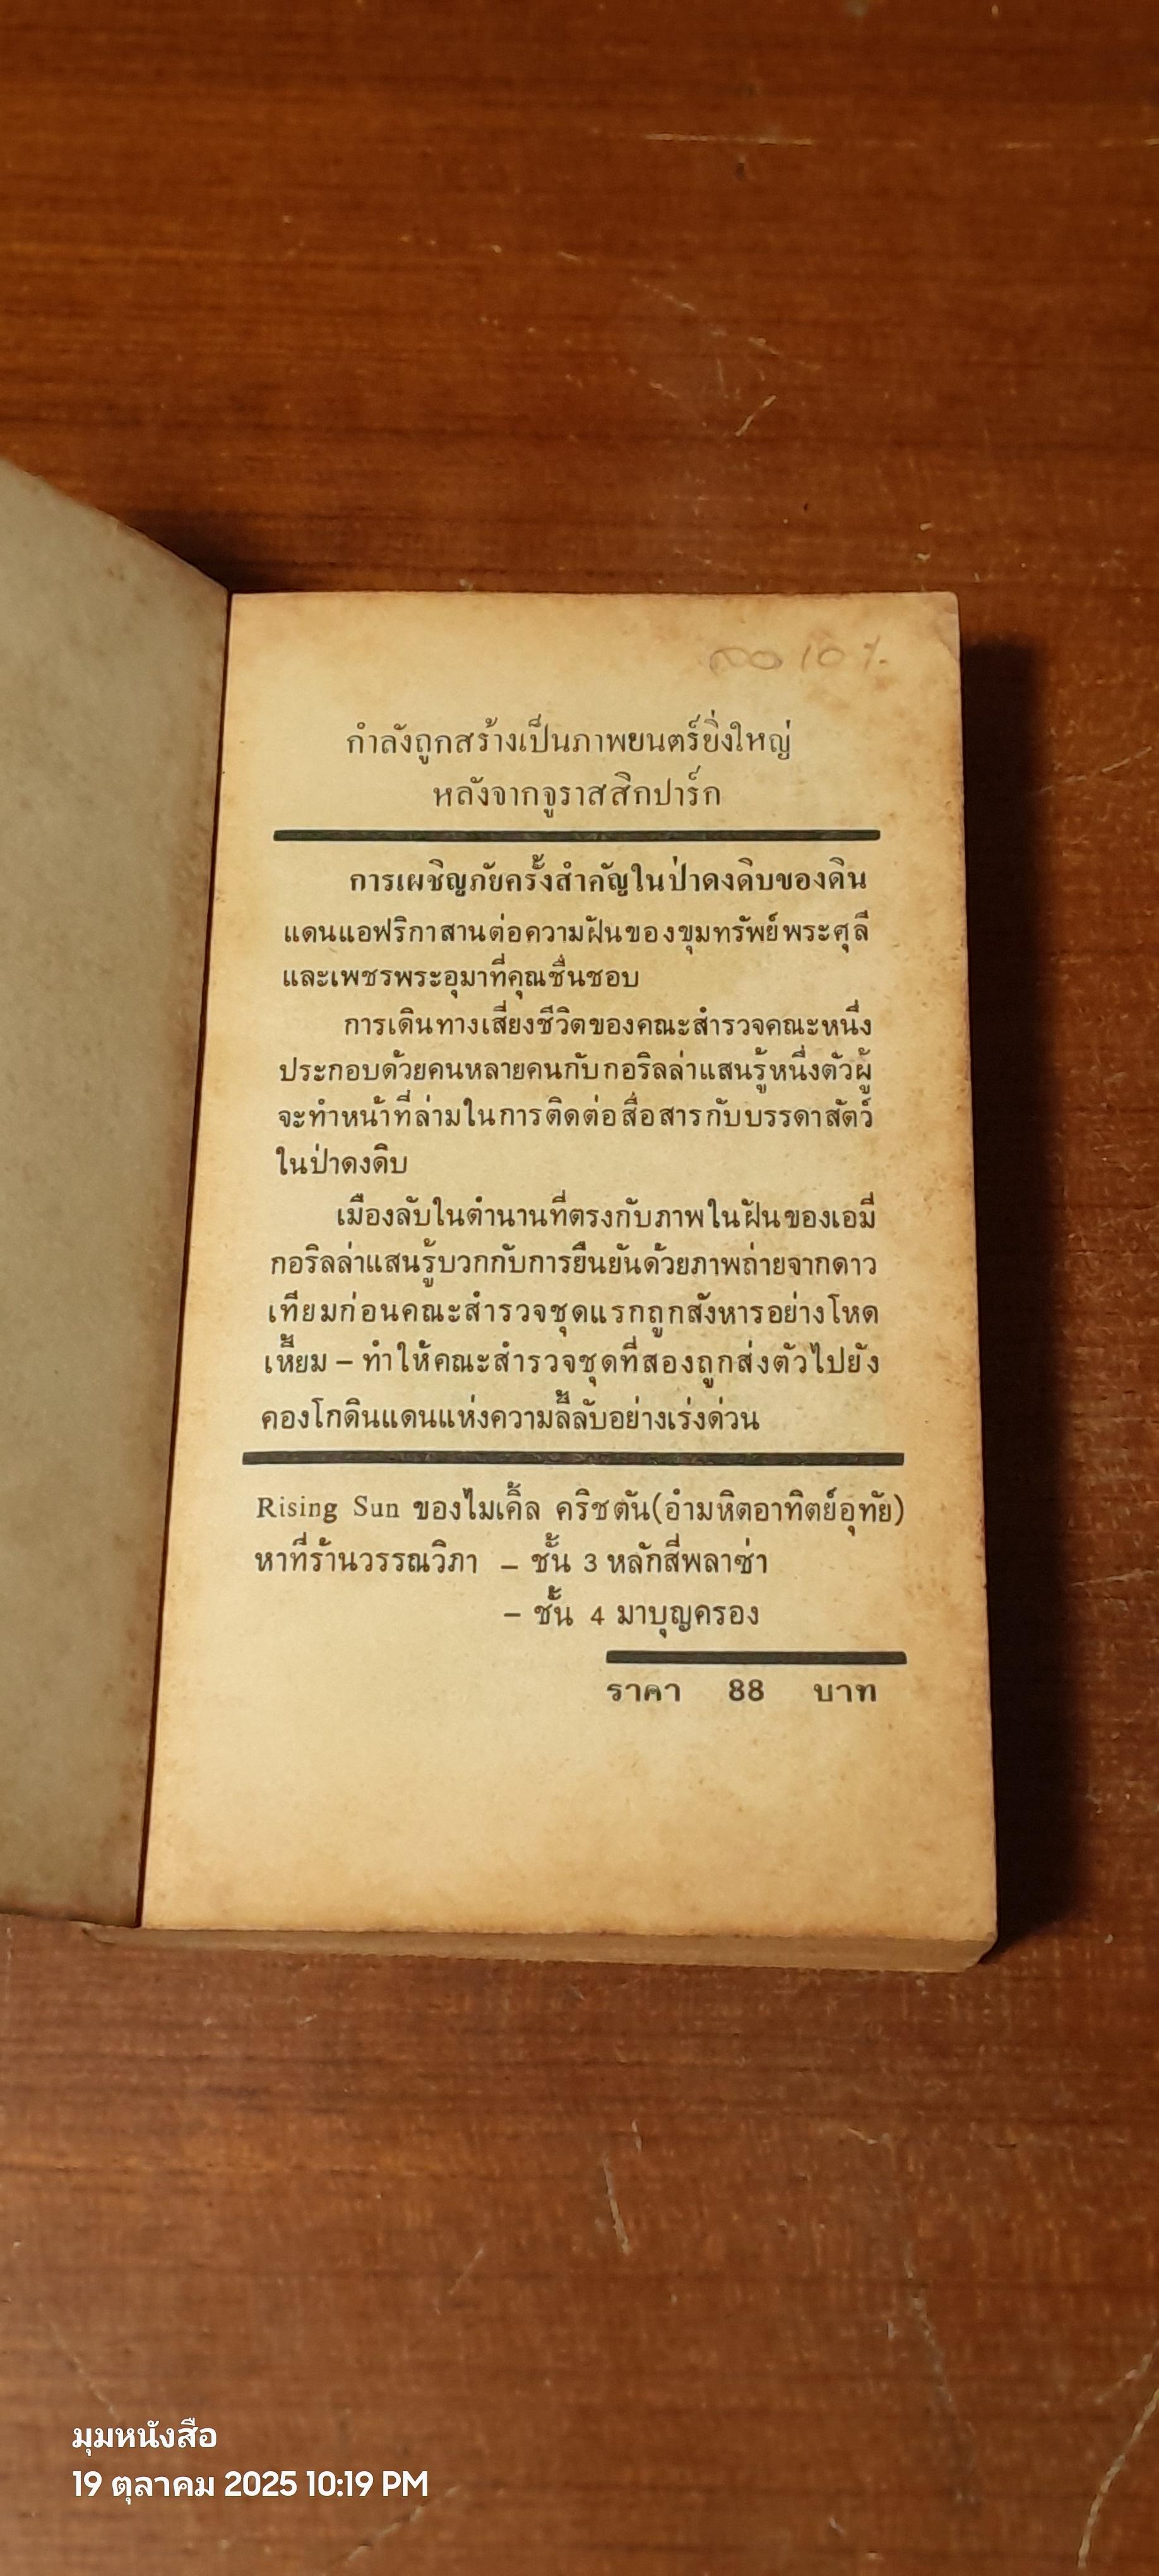 ลด 10 %
กำลังถูกสร้างเป็นภาพยนตร์ยิ่งใหญ่
หลังจากจูราสสิกปาร์ก
การเผชิญภัยครั้งสำคัญในป่าดงดิบของดิน
แดนแอฟริกาสานต่อความฝันของขุมทรัพย์พระศุลี
และเพชรพระอุมาที่คุณชื่นชอบ
การเดินทางเสี่ยงชีวิตของคณะสำรวจคณะหนึ่ง
ประกอบด้วยคนหลายคนกับกอริลล่าแสนรู้หนึ่งตัวผู้
จะทำหน้าที่ล่ามในการติดต่อสื่อสารกับบรรดาสัตว์
ในป่าดงดิบ
เมืองลับในตำนานที่ตรงกับภาพในฝันของเอมี่
กอริลล่าแสนรู้บวกกับการยืนยันด้วยภาพถ่ายจากดาว
เทียมก่อนคณะสำรวจชุดแรกถูกสังหารอย่างโหด
เหี้ยม – ทำให้คณะสำรวจชุดที่สองถูกส่งตัวไปยัง
คองโกดินแดนแห่งความลี้ลับอย่างเร่งด่วน
Rising Sun ของไมเคิ้ล คริชตัน(อำมหิตอาทิตย์อุทัย)
หาที่ร้านวรรณวิภา – ชั้น 3 หลักสี่พลาซ่า
– ชั้น 4 มาบุญครอง
ราคา 88 บาท
มุมหนังสือ
19 ตุลาคม 2025 10:19 PM